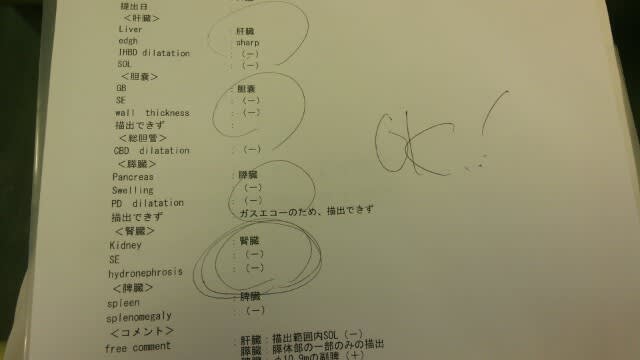 提出日
＜肝臓＞
Liver : 肝臓
edgh : sharp
IHBD dilatation : (－)
SOL : (－)
＜胆嚢＞
GB : 胆嚢
SE : (－)
wall thickness : (－)
描出できず :
＜総胆管＞
CBD dilatation : (－)
＜膵臓＞
Pancreas : 膵臓
Swelling : (－)
PD dilatation : (－)
描出できず : ガスエコーのため、描出できず
＜腎臓＞
Kidney : 腎臓
SE : (－)
hydronephrosis : (－)
＜脾臓＞
spleen : 脾臓
splenomegaly : (－)
＜コメント＞
free comment : 肝臓：描出範囲内SOL（－）
膵臓：膵体部の一部のみの描出
φ10.9mの副脾（＋）
OK!